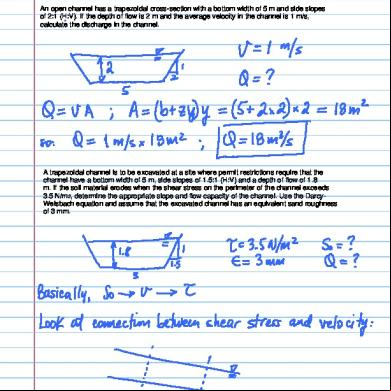 An open channel has a trapezoidal cross-section with a bottom width of 5 m and side slopes
of 2:1 (H:V). If the depth of flow is 2 m and the average velocity in the channel is 1 m/s,
calculate the discharge in the channel.
V = 1 m/s
2
1
2
5
Q = ?
Q = VA ; A = (b+zy)y = (5+2×2)×2 = 18m²
so: Q = 1 m/s × 18m² ; Q = 18 m³/s
A trapezoidal channel is to be excavated at a site where permit restrictions require that the
channel have a bottom width of 5 m, side slopes of 1.5:1 (H:V) and a depth of flow of 1.8
m. If the soil material erodes when the shear stress on the perimeter of the channel exceeds
3.5 N/m², determine the appropriate slope and flow capacity of the channel. Use the Darcy-
Weisbach equation and assume that the excavated channel has an equivalent sand roughness
of 3 mm.
1.8
1
1.5
5
τ = 3.5 N/m² So = ?
ϵ = 3 mm Q = ?
Basically, So → v → τ
Look at connection between shear stress and velocity:
1